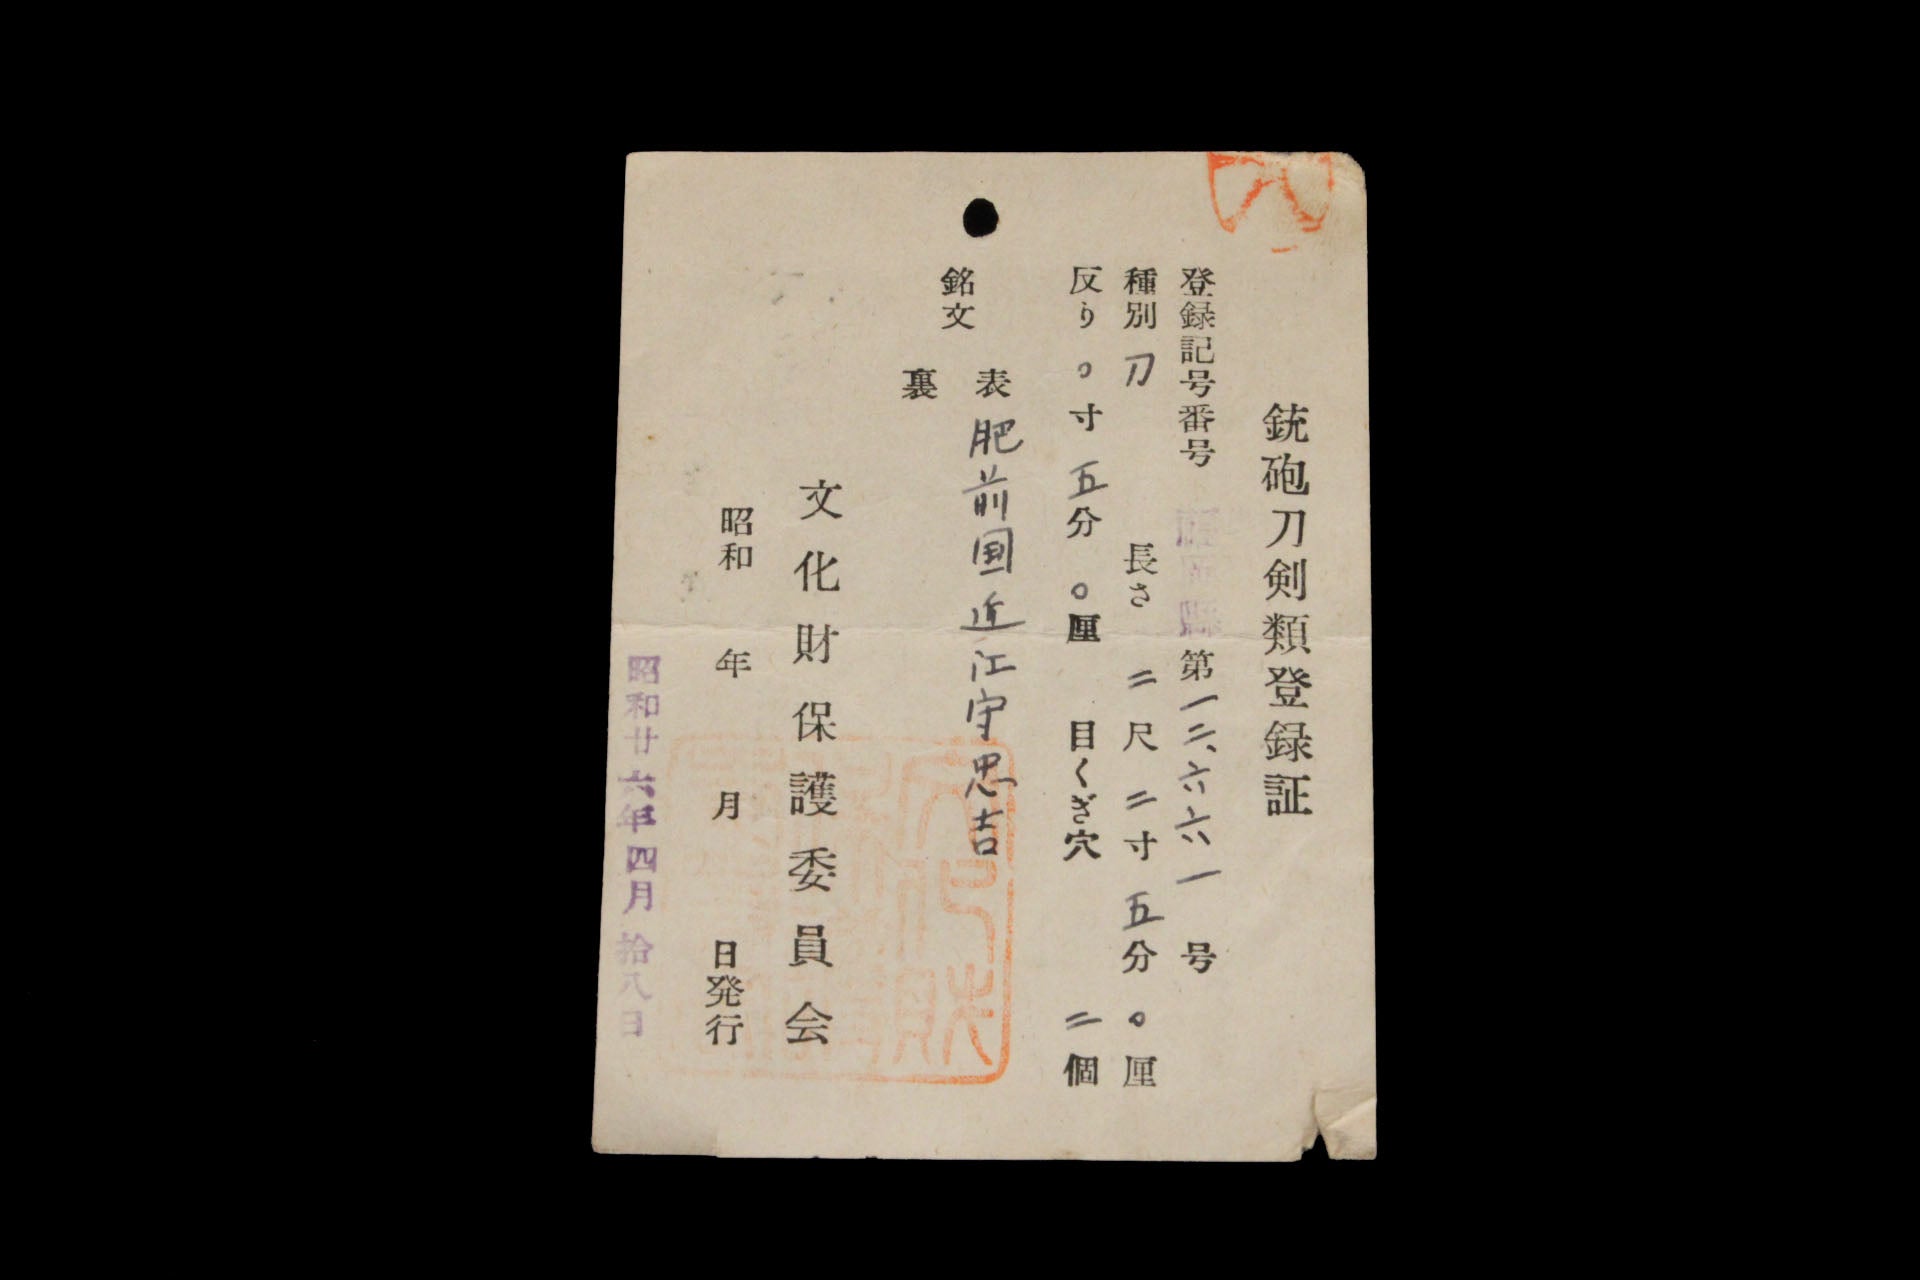 銃砲刀剣類登録証
登録記号番号 第一二、六六一号
種別 刀 長さ 二尺二寸五分〇厘
反り 〇寸五分〇厘 目くぎ穴 二個
銘文
表 肥前国近江守忠吉
裏
文化財保護委員会
昭和 年 月 日発行
昭和廿六年四月拾八日